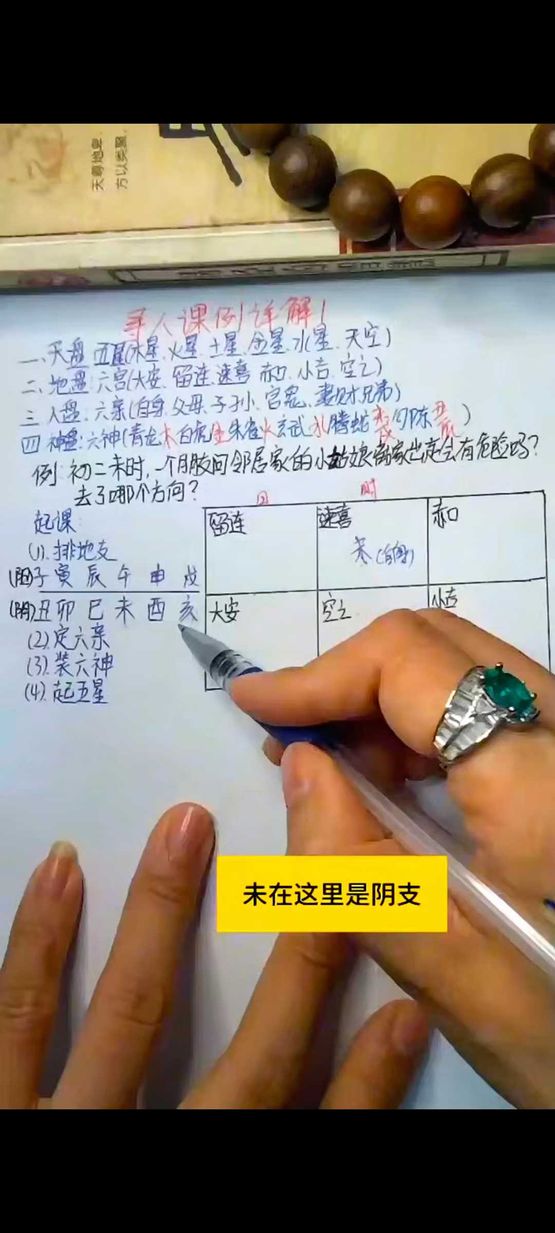 天尊地卑
方以类聚
寻人课例详解1
一、天盘:五星(木星、火星、土星、金星、水星、天空)
二、地盘:六宫(大安、留连、速喜、赤口、小吉、空亡)
三、人盘:六亲(自身、父母、子孙、官鬼、妻财、兄弟)
四、神盘:六神(青龙木白虎金朱雀火玄武水腾蛇 勾陈 )
例:初二未时,一个朋友问邻居家的小姑娘离家出走会有危险吗?
去了哪个方向?
日 时
起课:
(1).排地支
(阳)子 寅 辰 午 申 戌
(阴)丑 卯 巳 未 酉 亥
(2).定六亲
(3).装六神
(4).起五星
留连 速喜 赤口
未(自身)
大安 空亡 小吉
未在这里是阴支